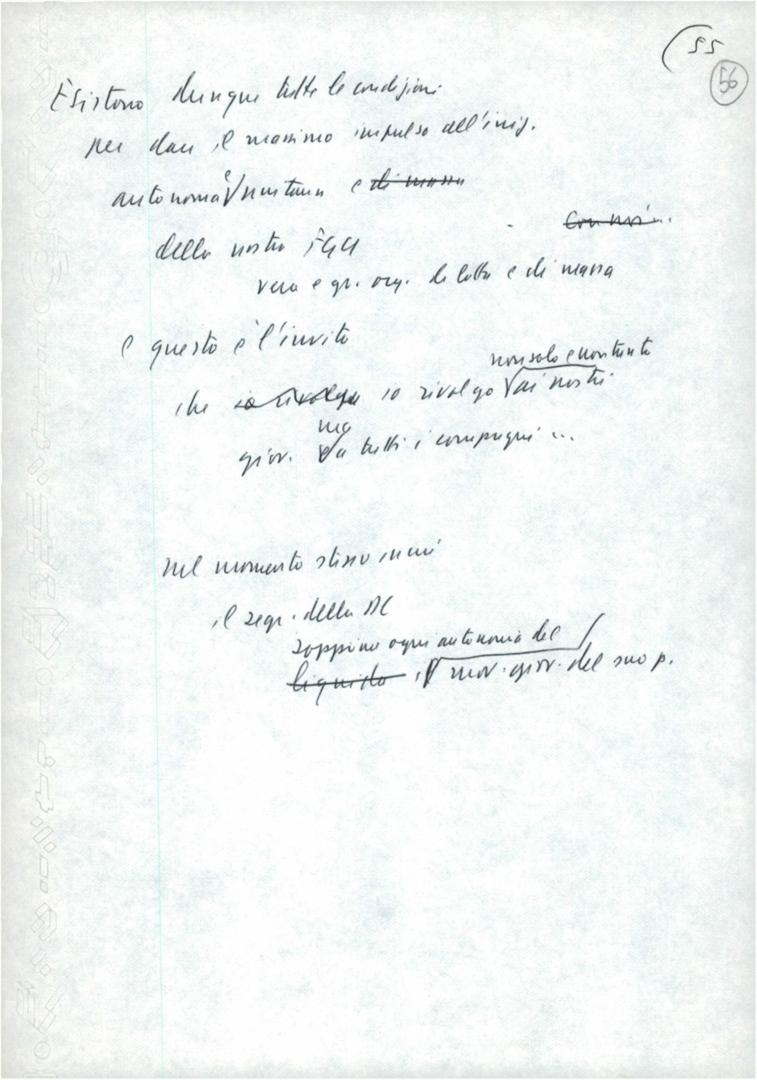 55
56
Esistono dunque tutte le condizioni
per dare il massimo impulso all'iniz.
autonoma e unitaria e di massa
della nostra FGCI
vera e gr. org. di lotta e di massa
E questo è l'invito
non solo e non tanto
che io rivolgo io rivolgo ai nostri
ma
giov. a tutti i compagni ...
Nel momento stesso in cui
il segr. della DC
soppime ogni autonomia del
liquida il mov. giov. del suo p.